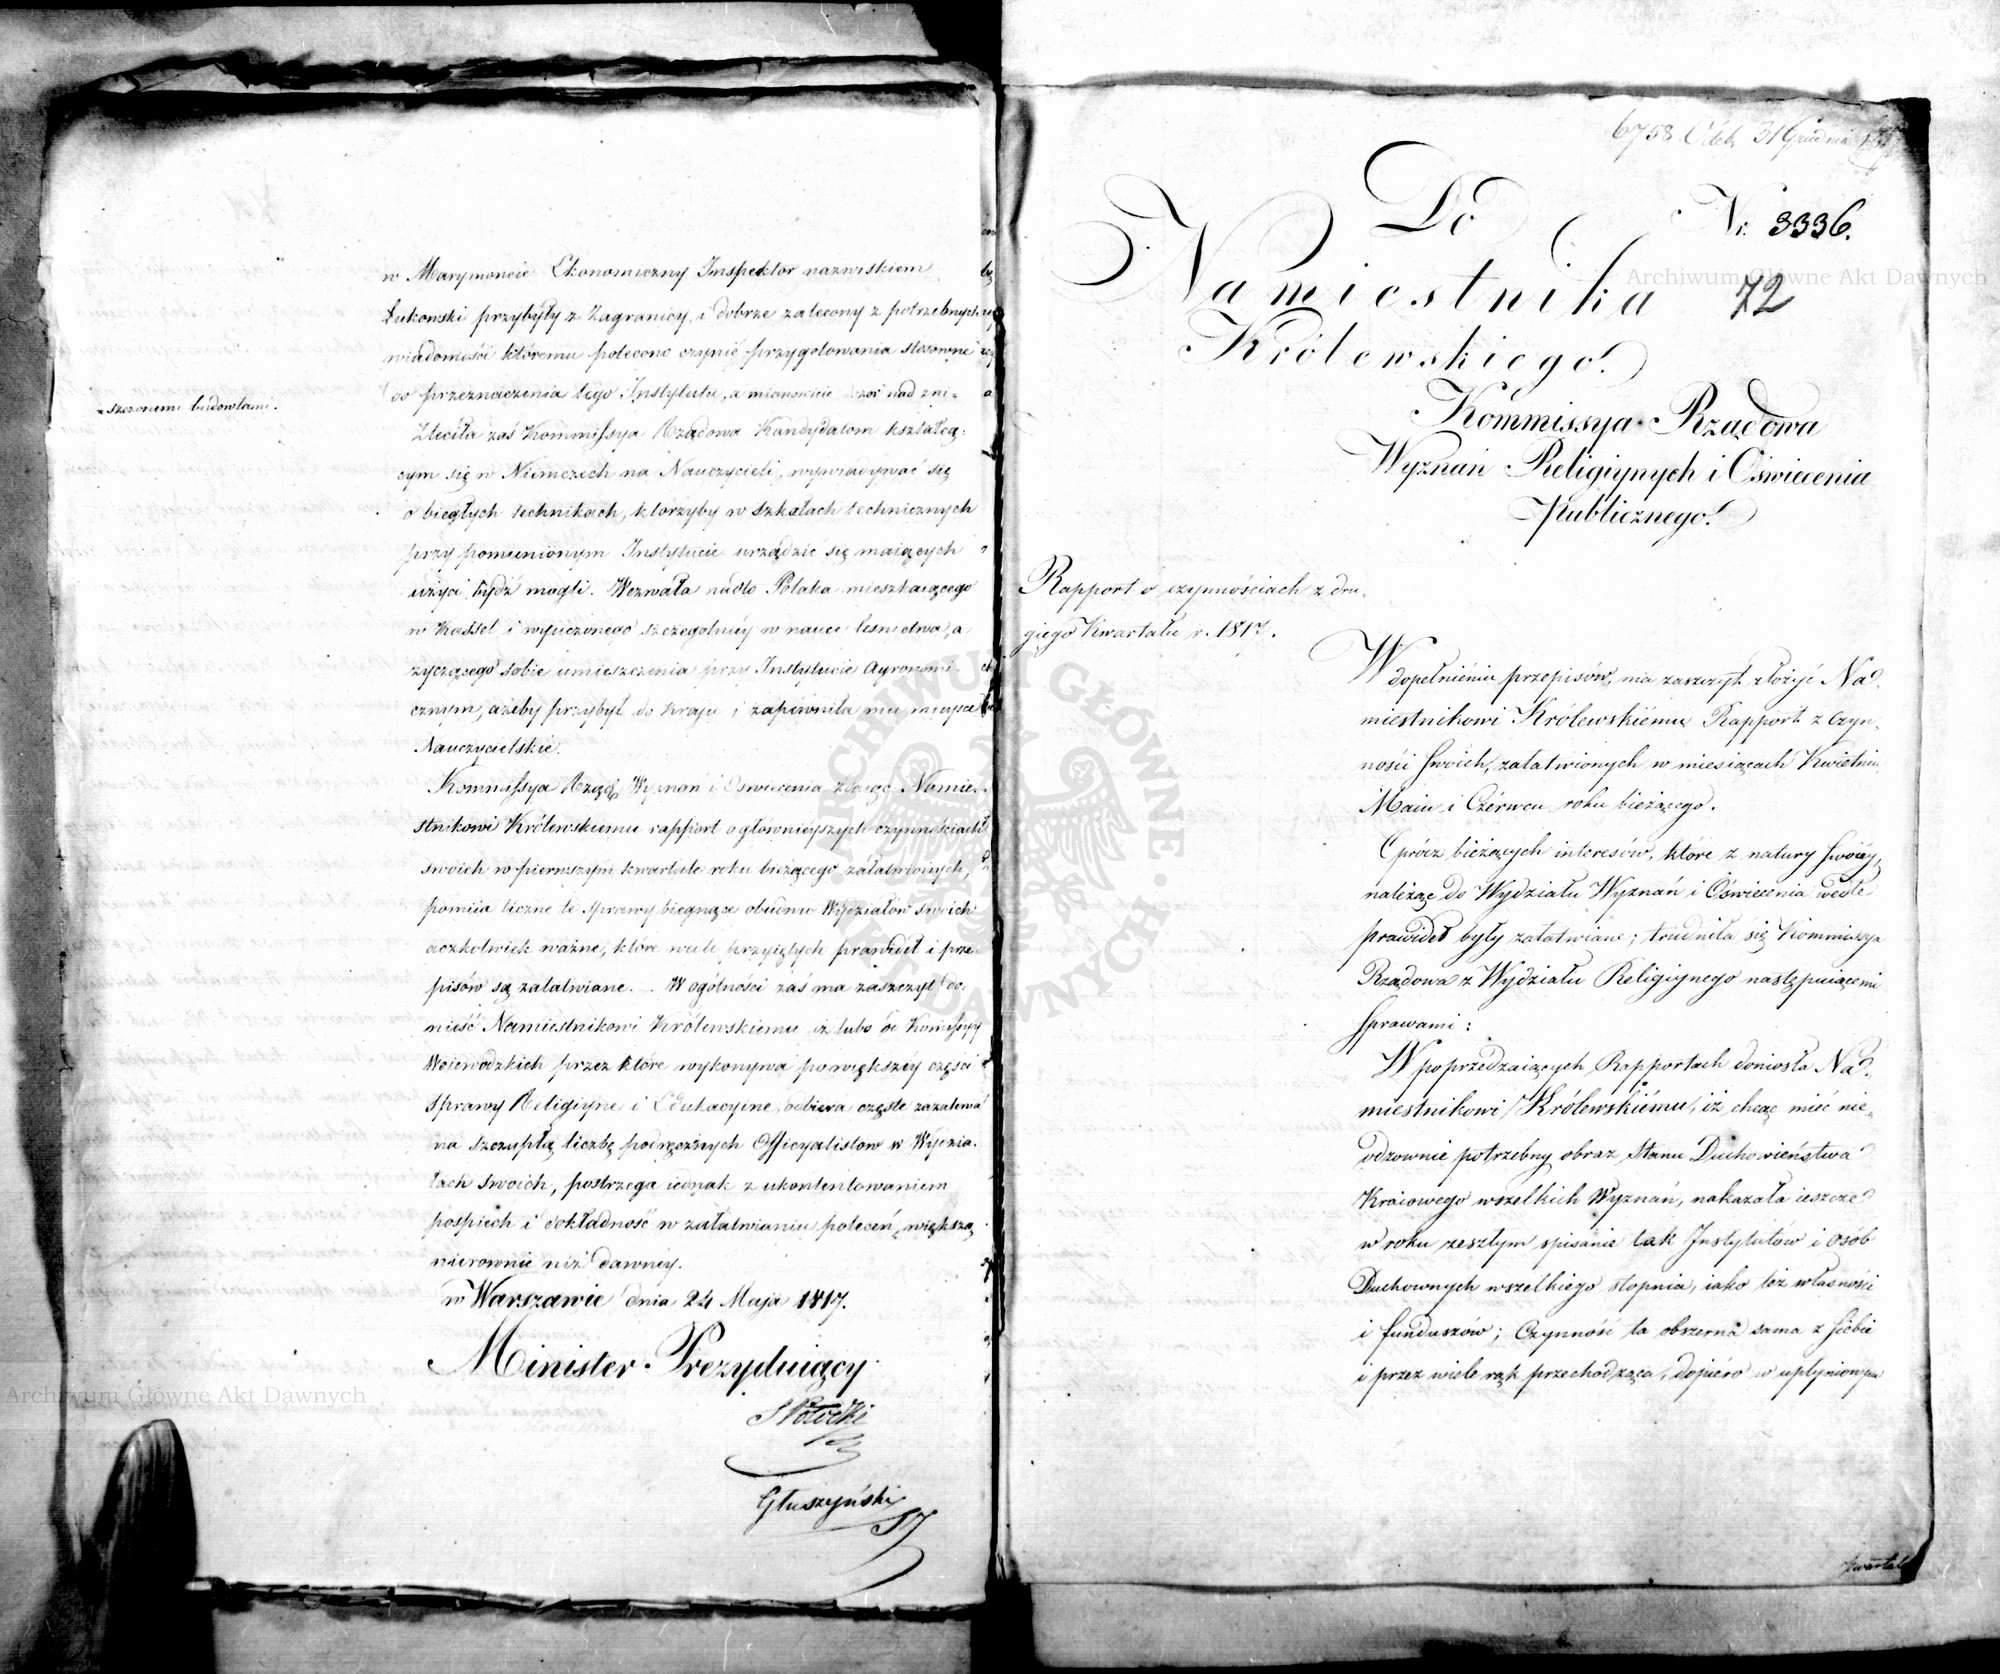 w Marymoncie Ekonomiczny Inspektor nazwiskiem
Łukomski przybyły z Zagranicy, i dobrze zalecony z potrzebnych
wiadomości któremu polecone czynić przygotowania stosowne
do przeznaczenia tego Instytutu, a mianowicie dozór nad zni-
-szczonemi budowlami.
Zleciła zaś Kommissya Rządowa Kandydatom kształcą-
cym się w Niemczech na Nauczycieli, wywiadywać się
o biegłych technikach, którzyby w szkołach technicznych
przy pomienionym Instytucie urządzić się maiących
użyci bydź mogli. Wezwała nadto Polaka mieszkaiącego
w Kassel i wyuczonego szczególniéy w nauce leśnictwa, a
życzącego sobie umieszczenia przy Instytucie Agronomi-
cznym, ażeby przybył do kraju i zapewniła mu mieysce
Nauczycielskie.
Kommissya Rządo. Wyznań i Oświecenia zdaiąc Namie-
stnikowi Królewskiemu rapport o główniéyszych czynnościach
swoich w pierwszym kwartale roku bieżącego załatwionych,
pomiia liczne te sprawy biegnące obudwu Wydziałów swoich
aczkolwiek ważne, które wedle przyiętych prawideł i prze-
pisów są załatwiane. W ogólności zaś ma zaszczyt do-
nieść Namiestnikowi Królewskiemu iż lubo od Komissyy
Woiewódzkich przez które wykonywa powiększéy części
sprawy Religiyne i Edukacyine, odbiera częste zażalenia
na szczupłą liczbę podręcznych Officyalistow w Wydzia-
łach swoich, postrzega iednak z ukontentowaniem
pośpiech i dokładność w załatwianiu poleceń większą
nierownie niż dawniéy.
w Warszawie dnia 24 Maja 1817.
Minister Prezyduiący
S Potocki
Głuszyński
SJ
6758 31 Grudnia
Do
Nr. 3336.
Namiestnika
72
Królewskiego.
Kommissya Rządowa
Wyznań Religiynych i Oświecenia
Publicznego.
Rapport o czynnościach z dru-
giego Kwartału r. 1817.
W dopełnieniu przepisów, ma zaszczyt złożyć Na-
miestnikowi Królewskiému Rapport z czyn-
ności swoich, załatwionych w miesiącach Kwietniu,
Maiu i Czérwcu roku bieżącego.
Oprócz bieżących interesów, które z natury swoiéy,
należąc do Wydziału Wyznań i Oświecenia wedle
prawideł były załatwiane; trudniła się Kommissya
Rządowa z Wydziału Religiynego następuiącemi
sprawami:
W poprzedzaiących Rapportach doniosła Na-
miestnikowi Królewskiému, iż chcąc mieć nie-
odzownie potrzebny obraz Stanu Duchowieństwa
Kraiowego wszelkich Wyznań, nakazała ieszcze
w roku zeszłym spisanie tak Instytutów i osób
Duchownych wszelkiego stopnia, iako też własności
i funduszów; Czynność ta obszerna sama z siebie
i przez wiele rąk przechodząca, dopiéro w upłynionym
kwartale
Archiwum Główne Akt Dawnych
Archiwum Główne Akt Dawnych
ARCHIWUM GŁÓWNE AKT DAWNYCH